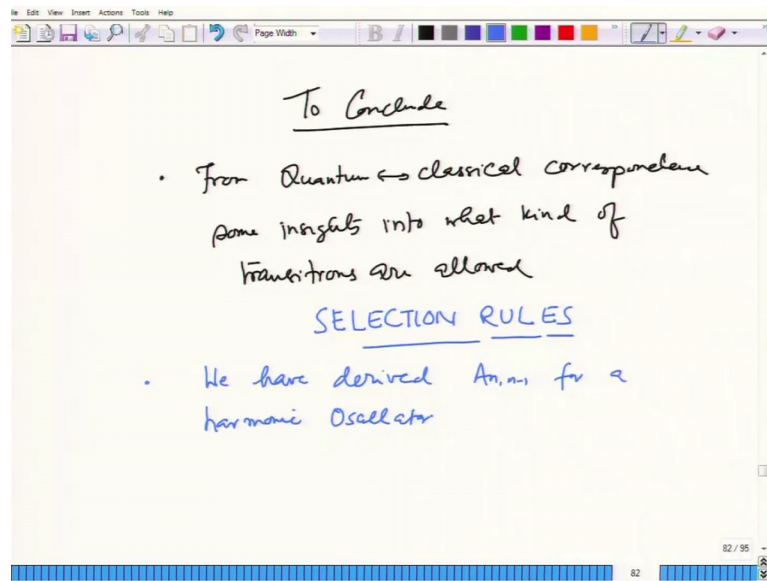 le Edit View Insert Actions Tools Help
Page Width
B I
To Conclude
• From Quantum ↔ classical correspondence
some insights into what kind of
transitions are allowed
SELECTION RULES
• We have derived An,n-1 for a
harmonic Oscillator
82 / 95
82